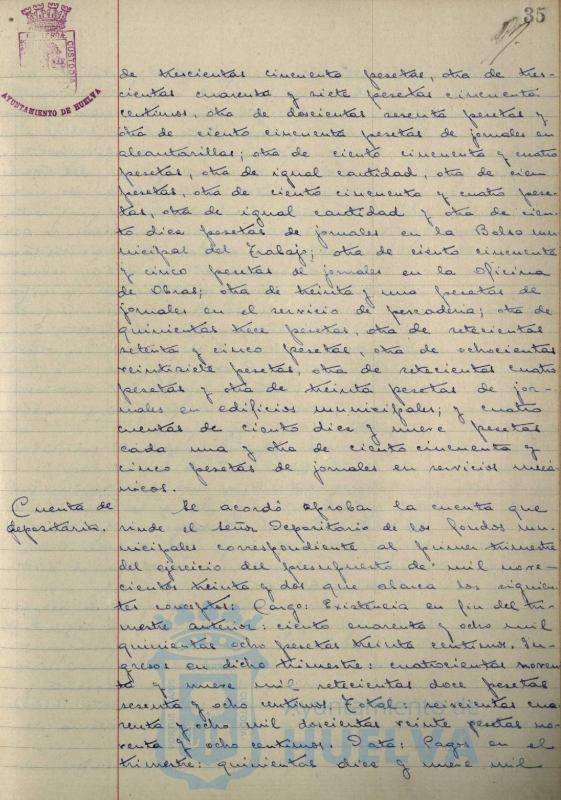 35
PORTUS MARIS ET TERRAE CUSTODIA
AYUNTAMIENTO DE HUELVA
de trescientas cincuenta pesetas, otra de tres-
cientas cuarenta y siete pesetas cincuenta
centimos, otra de doscientas sesenta pesetas y
otra de ciento cincuenta pesetas de jornales en
alcantarillas; otra de ciento cincuenta y cuatro
pesetas, otra de igual cantidad, otra de cien
pesetas, otra de ciento cincuenta y cuatro pese-
tas, otra de igual cantidad y otra de cien-
to diez pesetas de jornales en la Bolsa mu-
nicipal del Trabajo; otra de ciento cincuenta
y cinco pesetas de jornales en la Oficina
de Obras; otra de treinta y una pesetas de
jornales en el servicio de pescaderia; otra de
quinientas trece pesetas, otra de setecientas
setenta y cinco pesetas, otra de ochocientas
veintisiete pesetas, otra de setecientas cuatro
pesetas y otra de treinta pesetas de jor-
nales en edificios municipales; y cuatro
cuentas de ciento diez y nueve pesetas
cada una y otra de ciento cincuenta y
cinco pesetas de jornales en servicios mecá-
nicos.
Cuenta de
depositaria.
Se acordó aprobar la cuenta que
rinde el señor Depositario de los fondos mu-
nicipales correspondiente al primer trimestre
del ejercicio del presupuesto de mil nove-
cientos treinta y dos que abarca los siguien-
tes conceptos: Cargo: Existencia en fin del tri-
mestre anterior: ciento cuarenta y ocho mil
quinientas ocho pesetas treinta centimos. In-
gresos en dicho trimestre: cuatrocientas noven-
ta y nueve mil setecientas doce pesetas
sesenta y ocho centimos. Total: seiscientas cua-
renta y ocho mil doscientas veinte pesetas no-
venta y ocho centimos. Data: Pagos en el
trimestre: quinientas diez y nueve mil
Ayuntamiento de
HUELVA